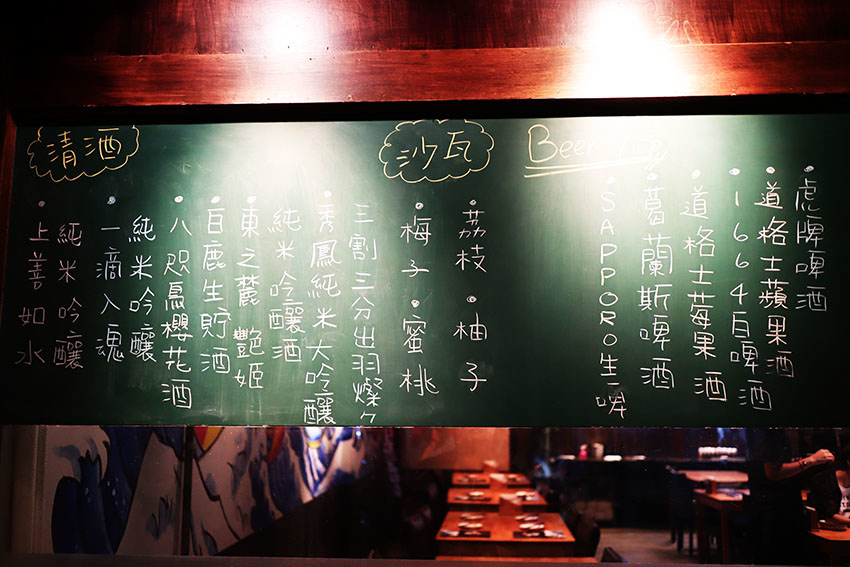 Beer
•虎牌啤酒
•道格士蘋果酒
•1664白啤酒
•道格士莓果酒
•葛蘭斯啤酒
•SAPPORO生啤
沙瓦
•荔枝•柚子
•梅子•蜜桃
清酒
三割三分出羽燦々
•秀鳳純米大吟釀
純米吟釀酒
•東之麓 艷姬
•白鹿生貯酒
•八咫烏櫻花酒
純米吟釀
•一滴入魂
純米吟釀
•上善如水